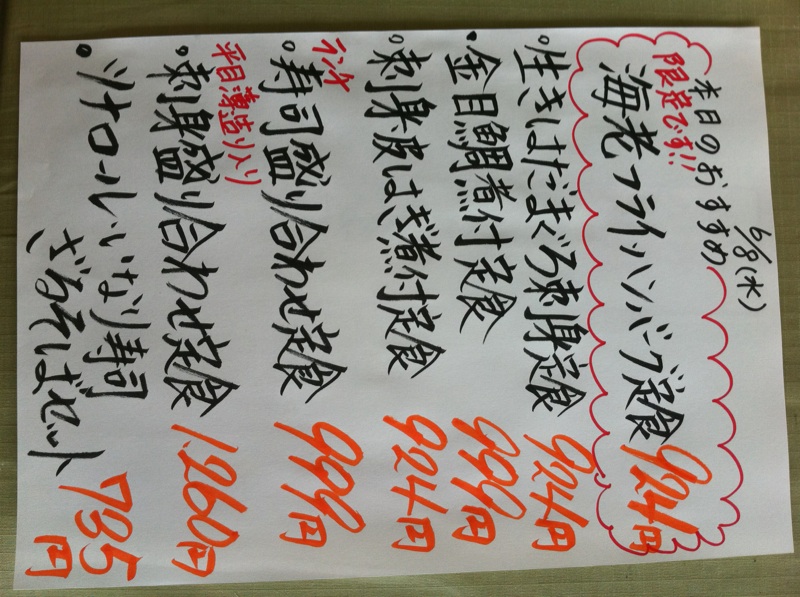 6/8(水)
本日のおすすめ
限定です!!
海老フライ・ハンバーグ定食 924円
・生きはだまぐろ刺身定食 924円
・金目鯛煮付定食 999円
・刺身皮はぎ煮付定食 924円
ランチ
・寿司盛り合わせ定食 999円
平目薄造り入り
・刺身盛り合わせ定食 1.260円
・ツナロール・いなり寿司
ざるそばセット 735円